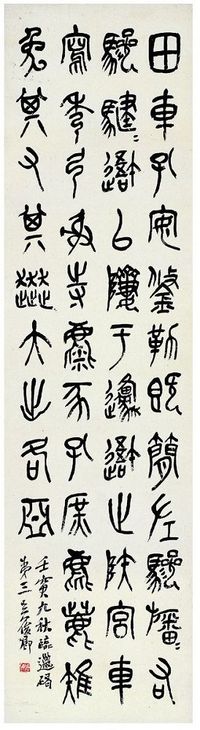 田車孔安鋚勒既簡左驂旛右
驂騝避以隮于邍避止陜宮車
寫秀弓射寺麋豕孔庶麀鹿雉
兔其又其大出各亞
壬寅九秋臨獵碣
第三吳俊卿